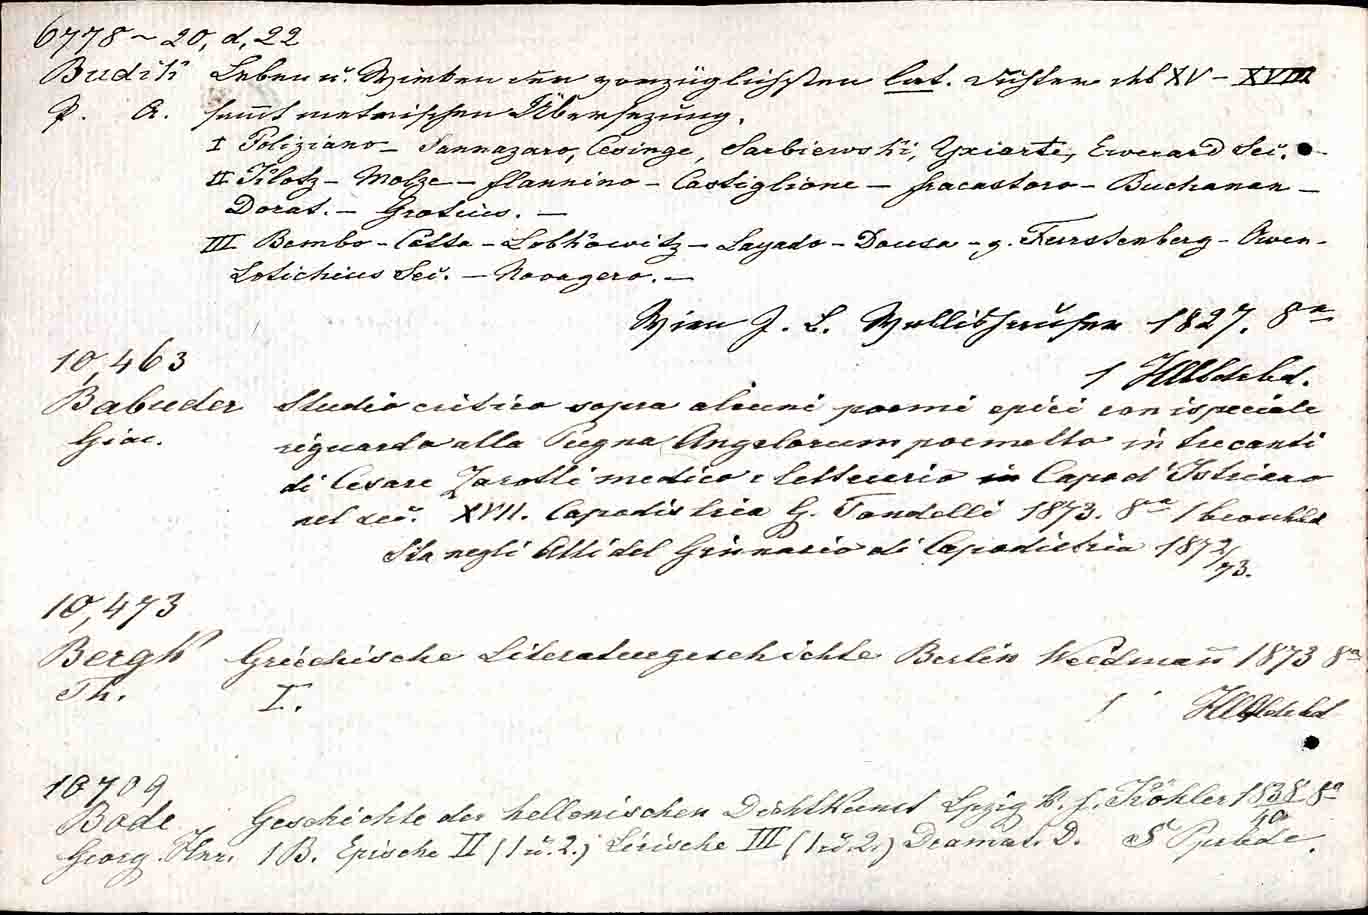 6778 ~ 20, d, 22
Budik Leben u. Wirken der vorzüglichsten lat. Dichter des XV – XVIII
P. A. sammt metrischen Übersezung.
I Poliziano – Sannazaro, Cesinge, Sarbiewski, Yriarte, Everard Sec. –
II Klotz – Molze – Flaminino – Castiglione – Fracastoro – Buchanan –
Dorat. – Grotius. –
III Bembo – Cotta – Lobkowitz – Sayado – Dousa – g. Furstenberg – Owen –
Lotichius Sec. – Navagero. –
Wien J. L. Wallishausser 1827. 8°
1 Hlbldrbd.
10,463
Babuder Studio critico sopra alcuni poemi epici con ispeciale
Giac. riguardo alla Pugna Angelorum poemetto in tre canti
di Cesare Zarotti medico e letterario in Capod'Istriano
nel sec. XVII. Capodistria G. Tondelli 1873. 8° 1
Sta negli Atti del Ginnasio di Capodistria 1872/73.
10,473
Bergk Griechische Literaturgeschichte Berlin Weidmann 1873 8°
Th. I.
1 Hlbldrbd
10709
Bode Geschichte der hellenischen Dichtkunst Lpzig K. F. Köhler 1838 8°
40
Georg Hnr. 1 B. Epische II (1 u. 2.) Lirische III (1 u. 2.) Dramat. D. 5 Ppbde.